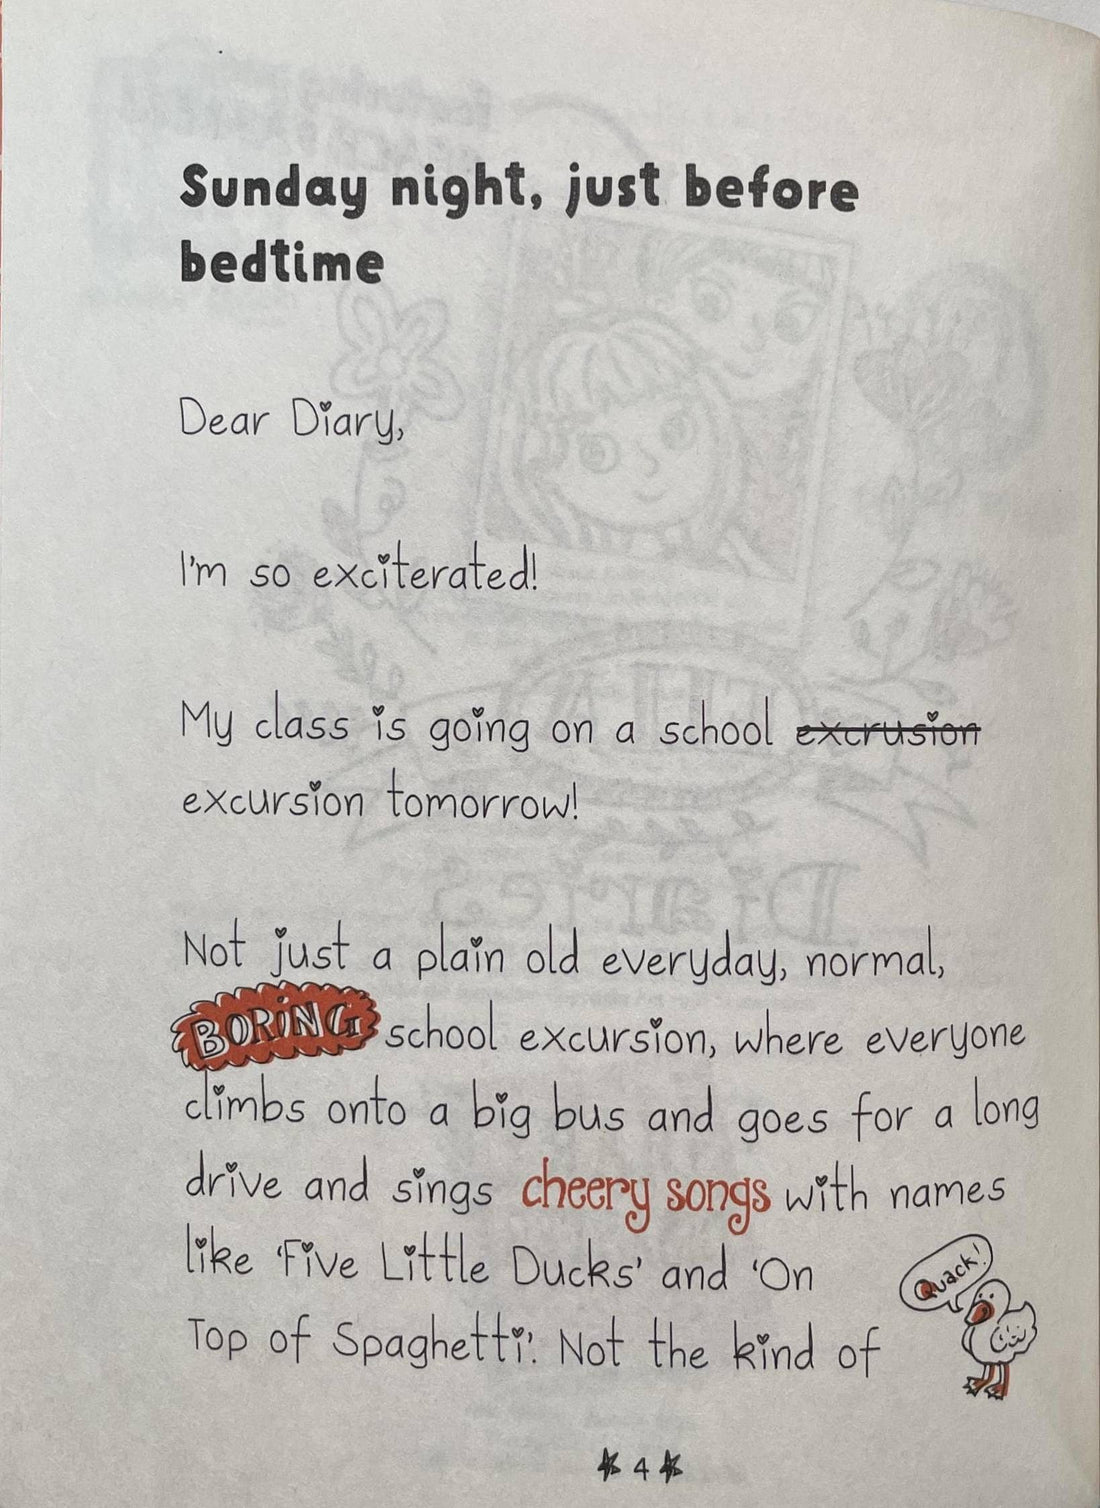 Sunday night, just before
bedtime
Dear Diary,
I'm so exciterated!
My class is going on a school excrusion
excursion tomorrow!
Not just a plain old everyday, normal,
BORING school excursion, where everyone
climbs onto a big bus and goes for a long
drive and sings cheery songs with names
like 'Five Little Ducks' and 'On
Top of Spaghetti'. Not the kind of
Quack!
4